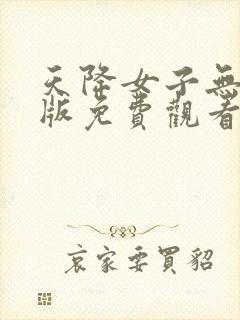 天降女子無
版免費觀看
哀家要買貂